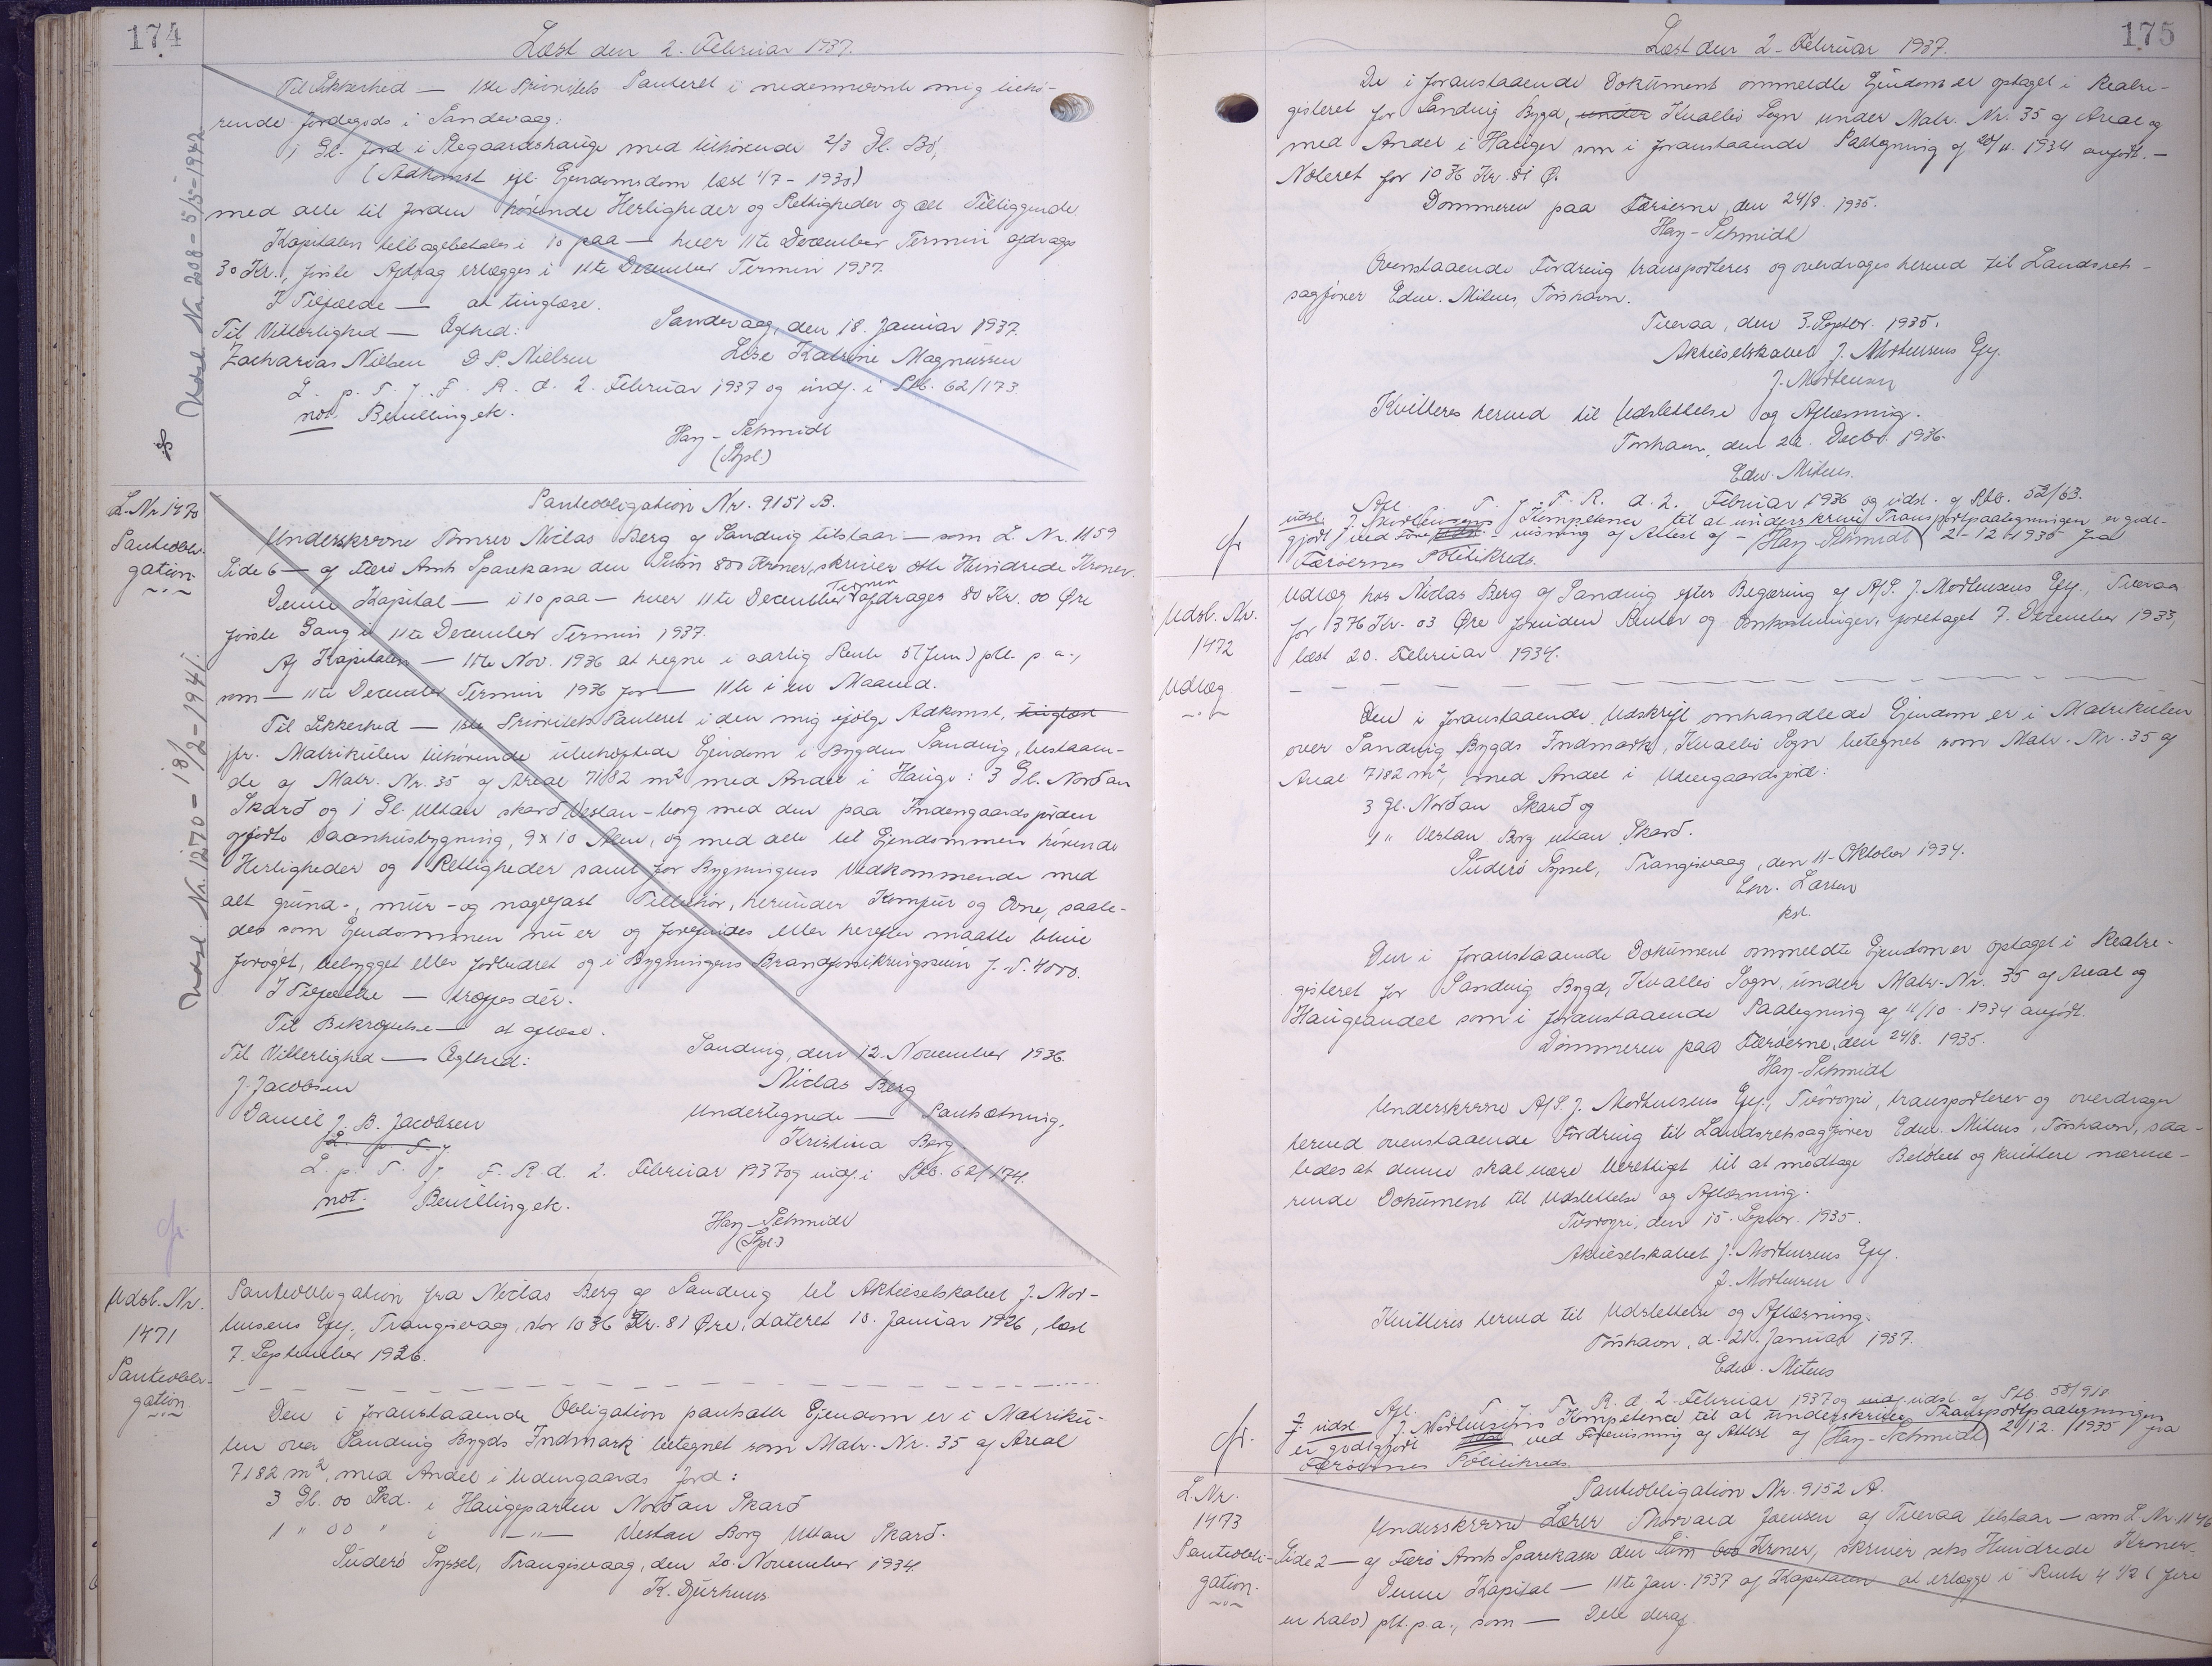 174
Læst den 2. Februar 1937.
Til Sikkerhed — 1ste Prioritets Panteret i nedennævnte mig tilhø-
rende Jordegods i Sandevaag:
1 Gl. Jord i Regaardshauge med tilhørende 2/3 Gl. Bø,
(Adkomst ifl. Ejendomsdom læst 1/7 - 1930)
med alle til Jorden hørende Herligheder og Rettigheder og alt Tilliggende.
Kapitalen tilbagebetales i 10 paa — hver 11te December Termin afdrages
30 Kr., første Afdrag erlægges i 11te December Termin 1937.
I Tilfælde — at tinglæse.
Til Vitterlighed — Ægthed: Sandevaag, den 18. Januar 1937.
Zacharias Nielsen D P. Nielsen Lise Katrine Magnussen
L. p. T. f. F. R. d. 2. Februar 1937 og indf. i Ptb. 62/173.
not. Bevilling etc.
Hay-Schmidt
(Stpl.)
Udsl. Nr. 2208 - 5/5 - 1942
L. Nr 1470
Panteobli-
gation
Udsl. Nr. 1270 - 18/2 - 1941.
Panteobligation Nr. 9151 B.
Underskrevne Tømrer Niclas Berg af Sandvig tilstaar — som L. Nr. 1159
Side 6 — af Færø Amts Sparekasse den Sum 800 Kroner, skriver Otte Hundrede Kroner.
Denne Kapital — i 10 paa — hver 11te December Termin afdrages 80 Kr. 00 Øre
første Gang i 11te December Termin 1937.
Af Kapitalen — 11te Nov. 1936 at regne i aarlig Rente 5 (Fem) pCt. p a.,
som — 11te December Termin 1936 for — 11te i en Maaned.
Til Sikkerhed — 1ste Prioritets Panteret i den mig ifølge Adkomst, tinglæst
jfr. Matrikulen tilhørende ubehæftede Ejendom i Bygden Sandvig, bestaaen-
de af Matr. Nr. 35 af Areal 7182 m² med Andel i Hauge: 3 Gl. Norðan
Skarð og 1 Gl. Uttan skarð Vestan-borg med den paa Indengaardsjorden
opførte Vaanhusbygning, 9 x 10 Alen, og med alle til Ejendommen hørende
Herligheder og Rettigheder samt for Bygningens Vedkommende med
alt grund-, mur- og nagelfast Tilbehør, herunder Komfur og Ovne, saale-
des som Ejendommen nu er og forefindes eller herefter maatte blive
forøget, bebygget eller forbedret og i Bygningens Brandforsikringssum f. T. 4000.
I Tilfælde — træffes dér.
Til Bekræftelse — at aflæse.
Til Vitterlighed — Ægthed: Sandvig, den 12. November 1936.
J. Jacobsen Niclas Berg
Daniel J. B. Jacobsen Undertegnede — Pantsætning.
L. p. T. f. Kristina Berg
L. p. T. f. F. R. d. 2. Februar 1937 og indf. i Ptb. 62/174.
not. Bevilling etc.
Hay-Schmidt
(Stpl.)
Udsl. Nr.
1471
Panteobli-
gation
Panteobligation fra Niclas Berg af Sandvig til Aktieselskabet J. Mor-
tensens Eftf., Trangisvaag, stor 1036 Kr. 81 Øre, dateret 18. Januar 1926, læst
7. September 1926.
Den i foranstaaende Obligation pantsatte Ejendom er i Matriku-
len over Sandvig Bygds Indmark betegnet som Matr. Nr. 35 af Areal
7182 m², med Andel i Udengaards Jord:
3 Gl. 00 Skd. i Haugeparten Norðan Skarð
1 " 00 " i —"— Vestan Borg Uttan Skarð.
Suderø Syssel, Trangisvaag, den 20. November 1934.
K. Djurhuus.
175
Læst den 2. Februar 1937.
De i foranstaaende Dokument ommeldte Ejendom er optaget i Realre-
gisteret for Sandvig Bygd, under Kvalbø Sogn under Matr. Nr. 35 af Areal og
med Andel i Haugen som i foranstaaende Paategning af 20/11. 1934 anført. —
Noteret for 1036 Kr. 81 Ø.
Dommeren paa Færøerne, den 24/8. 1935.
Hay-Schmidt
Ovenstaaende Fordring transporteres og overdrages herved til Landsrets-
sagfører Edw. Mitens, Torshavn.
Tveraa, den 3. Septbr. 1935.
Aktieselskabet J. Mortensens Eftf.
J. Mortensen
Kvitteres herved til Udslettelse og Aflæsning.
Torshavn, den 22. Decbr. 1936.
Edw. Mitens.
Afl. T. f. F. R. d. 2. Februar 1936 og udsl. af Ptb. 52/63.
udsl. J. Mortensens Kompetence til at underskrive Transportpaategningen er godt-
gjort ved Fore-visning af Attest af — (Hay-Schmidt) 2-12-1935 fra
Færøernes Politikreds.
Udsl. Nr.
1472
Udlæg
Udlæg hos Niclas Berg af Sandvig efter Begæring af A/S. J. Mortensens Eftf., Tveraa
for 376 Kr. 03 Øre foruden Renter og Omkostninger, foretaget 7. December 1933,
læst 20. Februar 1934.
Den i foranstaaende Udskrift omhandlede Ejendom er i Matrikulen
over Sandvig Bygds Indmark, Kvalbø Sogn betegnet som Matr. Nr. 35 af
Areal 7182 m², med Andel i Udengaardsjord:
3 Gl. Norðan Skarð og
1 " Vestan Borg uttan Skarð.
Suderø Syssel, Trangisvaag, den 11. Oktober 1934.
Chr. Larsen
kst.
Den i foranstaaende Dokument ommeldte Ejendom er optaget i Realre-
gisteret for Sandvig Bygd, Kvalbø Sogn, under Matr. Nr. 35 af Areal og
Haugeandel som i foranstaaende Paategning af 11/10. 1934 anført.
Dommeren paa Færøerne, den 24/8. 1935.
Hay-Schmidt
Underskrevne A/S. J. Mortensens Eftf., Tvøroyri, transporterer og overdrager
herved ovenstaaende Fordring til Landsretssagfører Edw. Mitens, Torshavn, saa-
ledes at denne skal være berettiget til at modtage Beløbet og kvittere nærvæ-
rende Dokument til Udslettelse og Aflæsning.
Tvøroyri, den 15. Septbr. 1935.
Aktieselskabet J. Mortensens Eftf.
J. Mortensen
Kvitteres herved til Udslettelse og Aflæsning.
Torshavn, d. 21. Januar 1937.
Edw. Mitens
Afl. T. f. F. R. d. 2. Februar 1937 og indf. udsl. af Ptb. 58/918
udsl. J. Mortensens Kompetence til at underskrive Transportpaategningen
er godtgjort ved Forevisning af Attest af (Hay-Schmidt) 2/12. 1935 fra
Færøernes Politikreds.
L. Nr.
1473
Panteobli-
gation.
Panteobligation Nr. 9152 A.
Underskrevne Lærer Thorvald Joensen af Tveraa tilstaar — som L. Nr. 1146
Side 2 — af Færø Amts Sparekasse den Sum 600 Kroner, skriver seks Hundrede Kroner.
Denne Kapital — 11te Jan. 1937 af Kapitalen at erlægge i Rente 4 1/2 (fire
en halv) pCt. p.a., som — Dele deraf